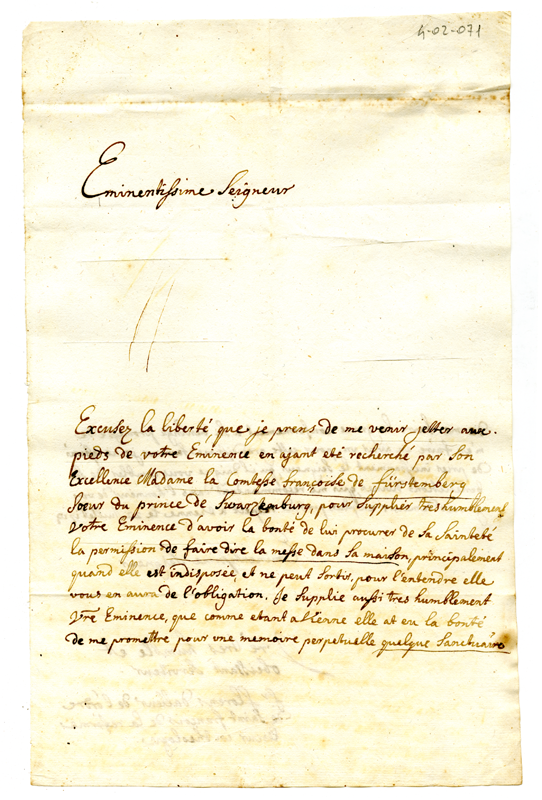 4-02-071
Eminentissime Seigneur
Excusez la liberté que je prens de me venir jetter aux
pieds de votre Eminence en ajant eté recherché par Son
Excellence Madame la Comtesse françoise de fürstemberg
Soeur du prince de Swarzenburg, pour Supplier tres humblement
votre Eminence d'avoir la bonté de lui procurer de Sa Sainteté
la permission de faire dire la messe dans Sa maison, principalement
quand elle est indisposée, et ne peut Sortir, pour l'entendre elle
vous en aura de l'obligation. Je Supplie aussi tres humblement
Vre Eminence, que comme etant a elle at eu la bonté
de me promettre pour une memoire perpetuelle quelque Sanctuaire